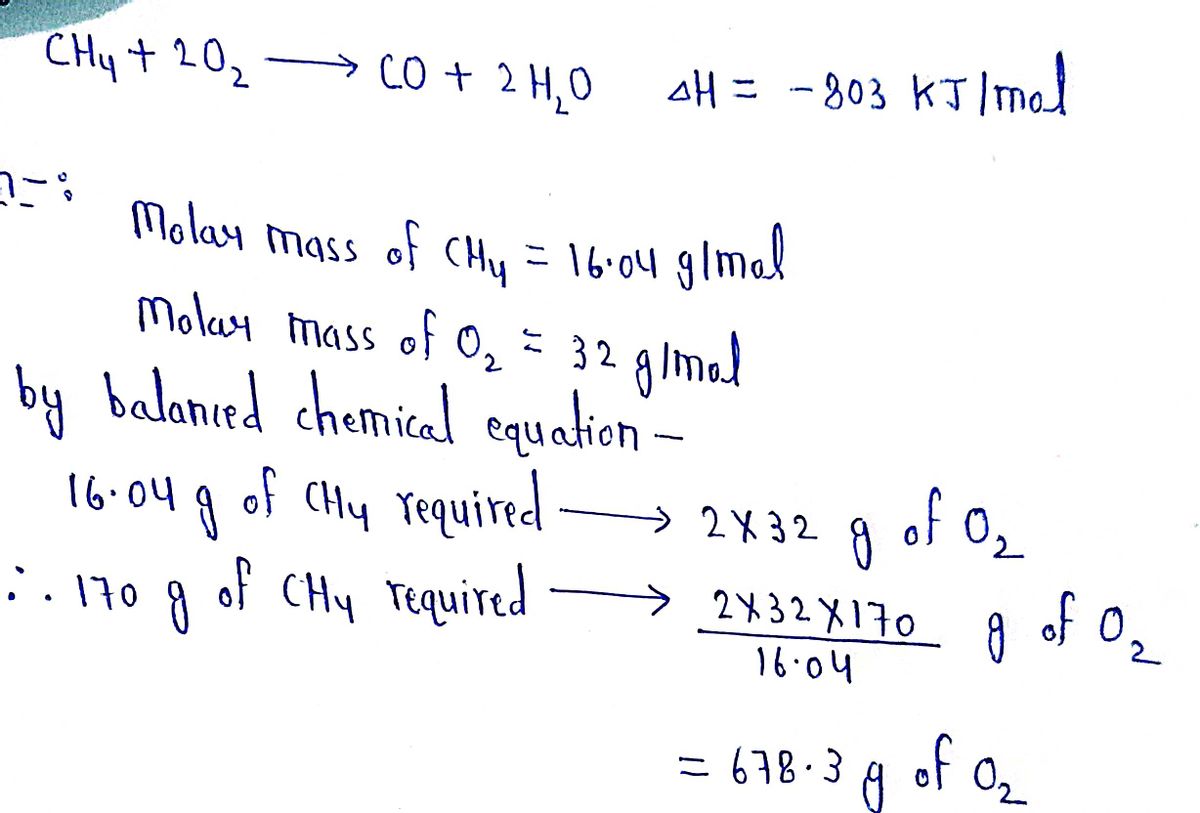 CH₄ + 2O₂ ⟶ CO + 2H₂O ΔH = -803 KJ/mol
Molar mass of CH₄ = 16.04 g/mol
Molar mass of O₂ = 32 g/mol
by balanced chemical equation -
16.04 g of CH₄ required ⟶ 2×32 g of O₂
∴ 170 g of CH₄ required ⟶ 2×32×170 g of O₂
16.04
= 678.3 g of O₂